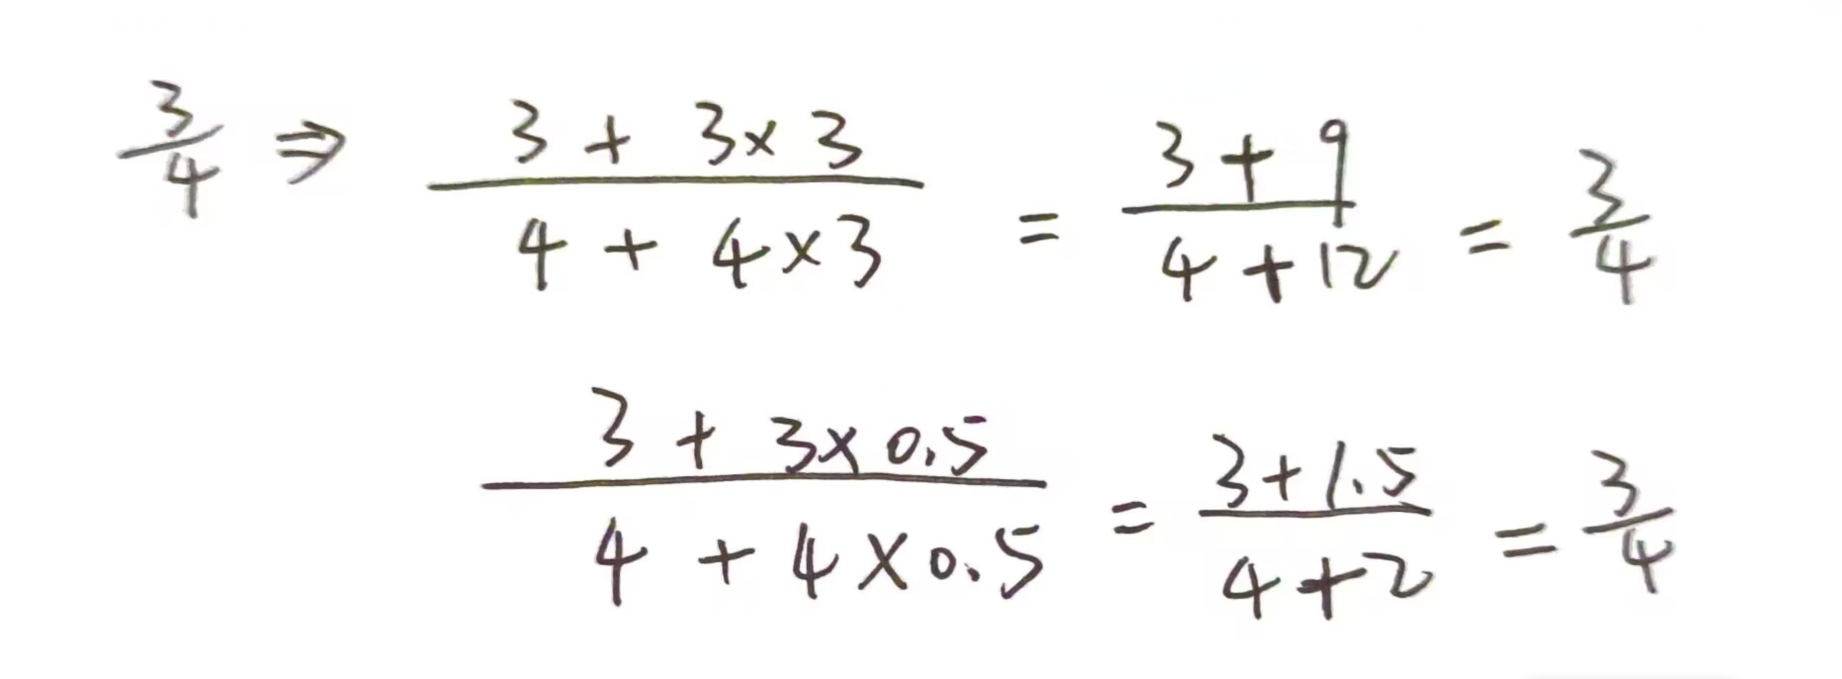 3/4 ⇒ (3 + 3×3)/(4 + 4×3) = (3+9)/(4+12) = 3/4
(3 + 3×0.5)/(4 + 4×0.5) = (3+1.5)/(4+2) = 3/4